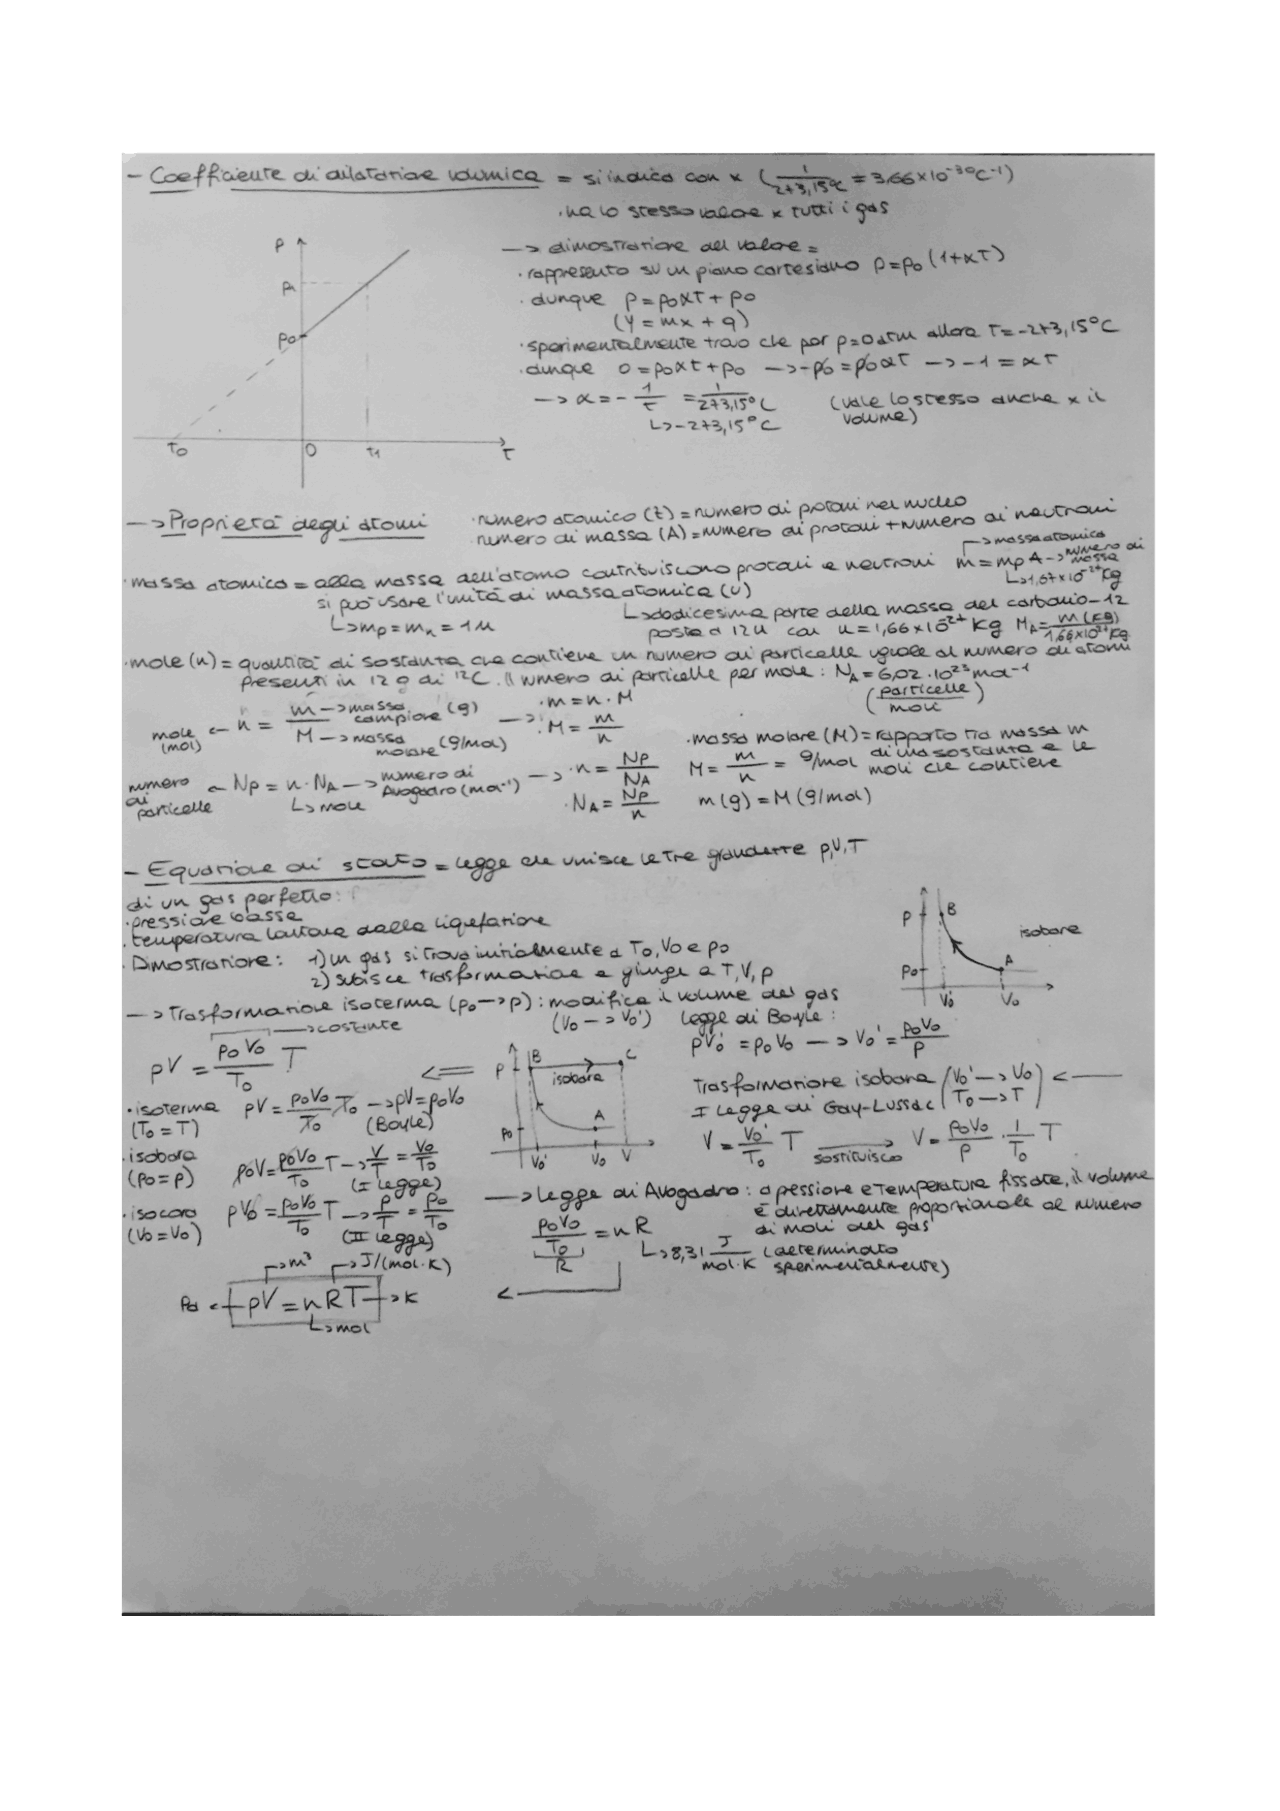 - Coefficiente di dilatazione volumica = si indica con α (1/273,15°C = 3,66×10⁻³°C⁻¹)
· ha lo stesso valore x tutti i gas
P
P1
P0
T0 0 T1 T
—> dimostrazione del valore =
· rappresento su un piano cartesiano P=P0 (1+αT)
· dunque P=P0αT+P0
(y=mx+q)
· sperimentalmente trovo che per p=0atm allora T=-273,15°C
· dunque 0=P0αT+P0 —> -P0=P0αT —> -1=αT
—> α=-1/T =1/273,15°C (vale lo stesso anche x il
L> -273,15°C volume)
—> Proprietà degli atomi · numero atomico (Z)=numero di protoni nel nucleo
· numero di massa (A)=numero di protoni+numero di neutroni
—> massa atomica
· massa atomica = alla massa dell'atomo contribuiscono protoni e neutroni m=mp A —> numero di massa
L> 1,67×10⁻²⁷kg
si può usare l'unità di massa atomica (u)
L> mp=mn=1u
L> dodicesima parte della massa del carbonio-12
posta a 12u con u=1,66×10⁻²⁷ kg MA=m(kg)/1,66×10⁻²⁷kg
· mole (n) = quantità di sostanza che contiene un numero di particelle uguale al numero di atomi
presenti in 12 g di ¹²C. Il numero di particelle per mole: NA=6,02·10²³mol⁻¹
(particelle/moli)
mole (mol) <— n = m/M —> massa campione (g) —> · m=n·M
—> massa molare (g/mol) · M=m/n
· massa molare (M)=rapporto tra massa m
di una sostanza e le
moli che contiene
M=m/n = g/mol
numero di particelle <— Np=n·NA —> numero di Avogadro (mol⁻¹) —> · n=Np/NA
L> mole · NA=Np/n
m(g)=M(g/mol)
- Equazione di stato = legge che unisce le tre grandezze p,V,T
di un gas perfetto:
· pressione bassa
· temperatura lontana dalla liquefazione
· Dimostrazione: 1) un gas si trova inizialmente a T0,V0 e p0
2) subisce trasformazione e giunge a T,V,p
P B isobare
P0 A
V0' V0
—> Trasformazione isoterma (p0—>p): modifica il volume del gas
(V0 —> V0') legge di Boyle:
pV0' =p0V0 —> V0'=p0V0/p
—> costante
pV = p0V0/T0 T <==
P B C
isobara
A
P0
V0' V0 V
Trasformazione isobara (V0'—>V0) <—
(T0—>T)
I legge di Gay-Lussac
V=V0'/T0 T sostituisco V=p0V0/p · 1/T0 T
· isoterma pV=p0V0/T0 T0 —> pV=p0V0
(T0=T) (Boyle)
· isobara p0V=p0V0/T0 T —> V/T=V0/T0
(p0=p) (I legge)
· isocora pV0=p0V0/T0 T —> p/T=p0/T0
(V0=V0) (II legge)
—> legge di Avogadro: a pessione e temperatura fissate, il volume
è direttamente proporzionale al numero
di moli del gas
p0V0/T0 = nR
R
L> 8,31 J/mol·K (determinato
sperimentalmente)
—> m³ —> J/(mol·K)
Pa <— pV=nRT —> K
L> mol